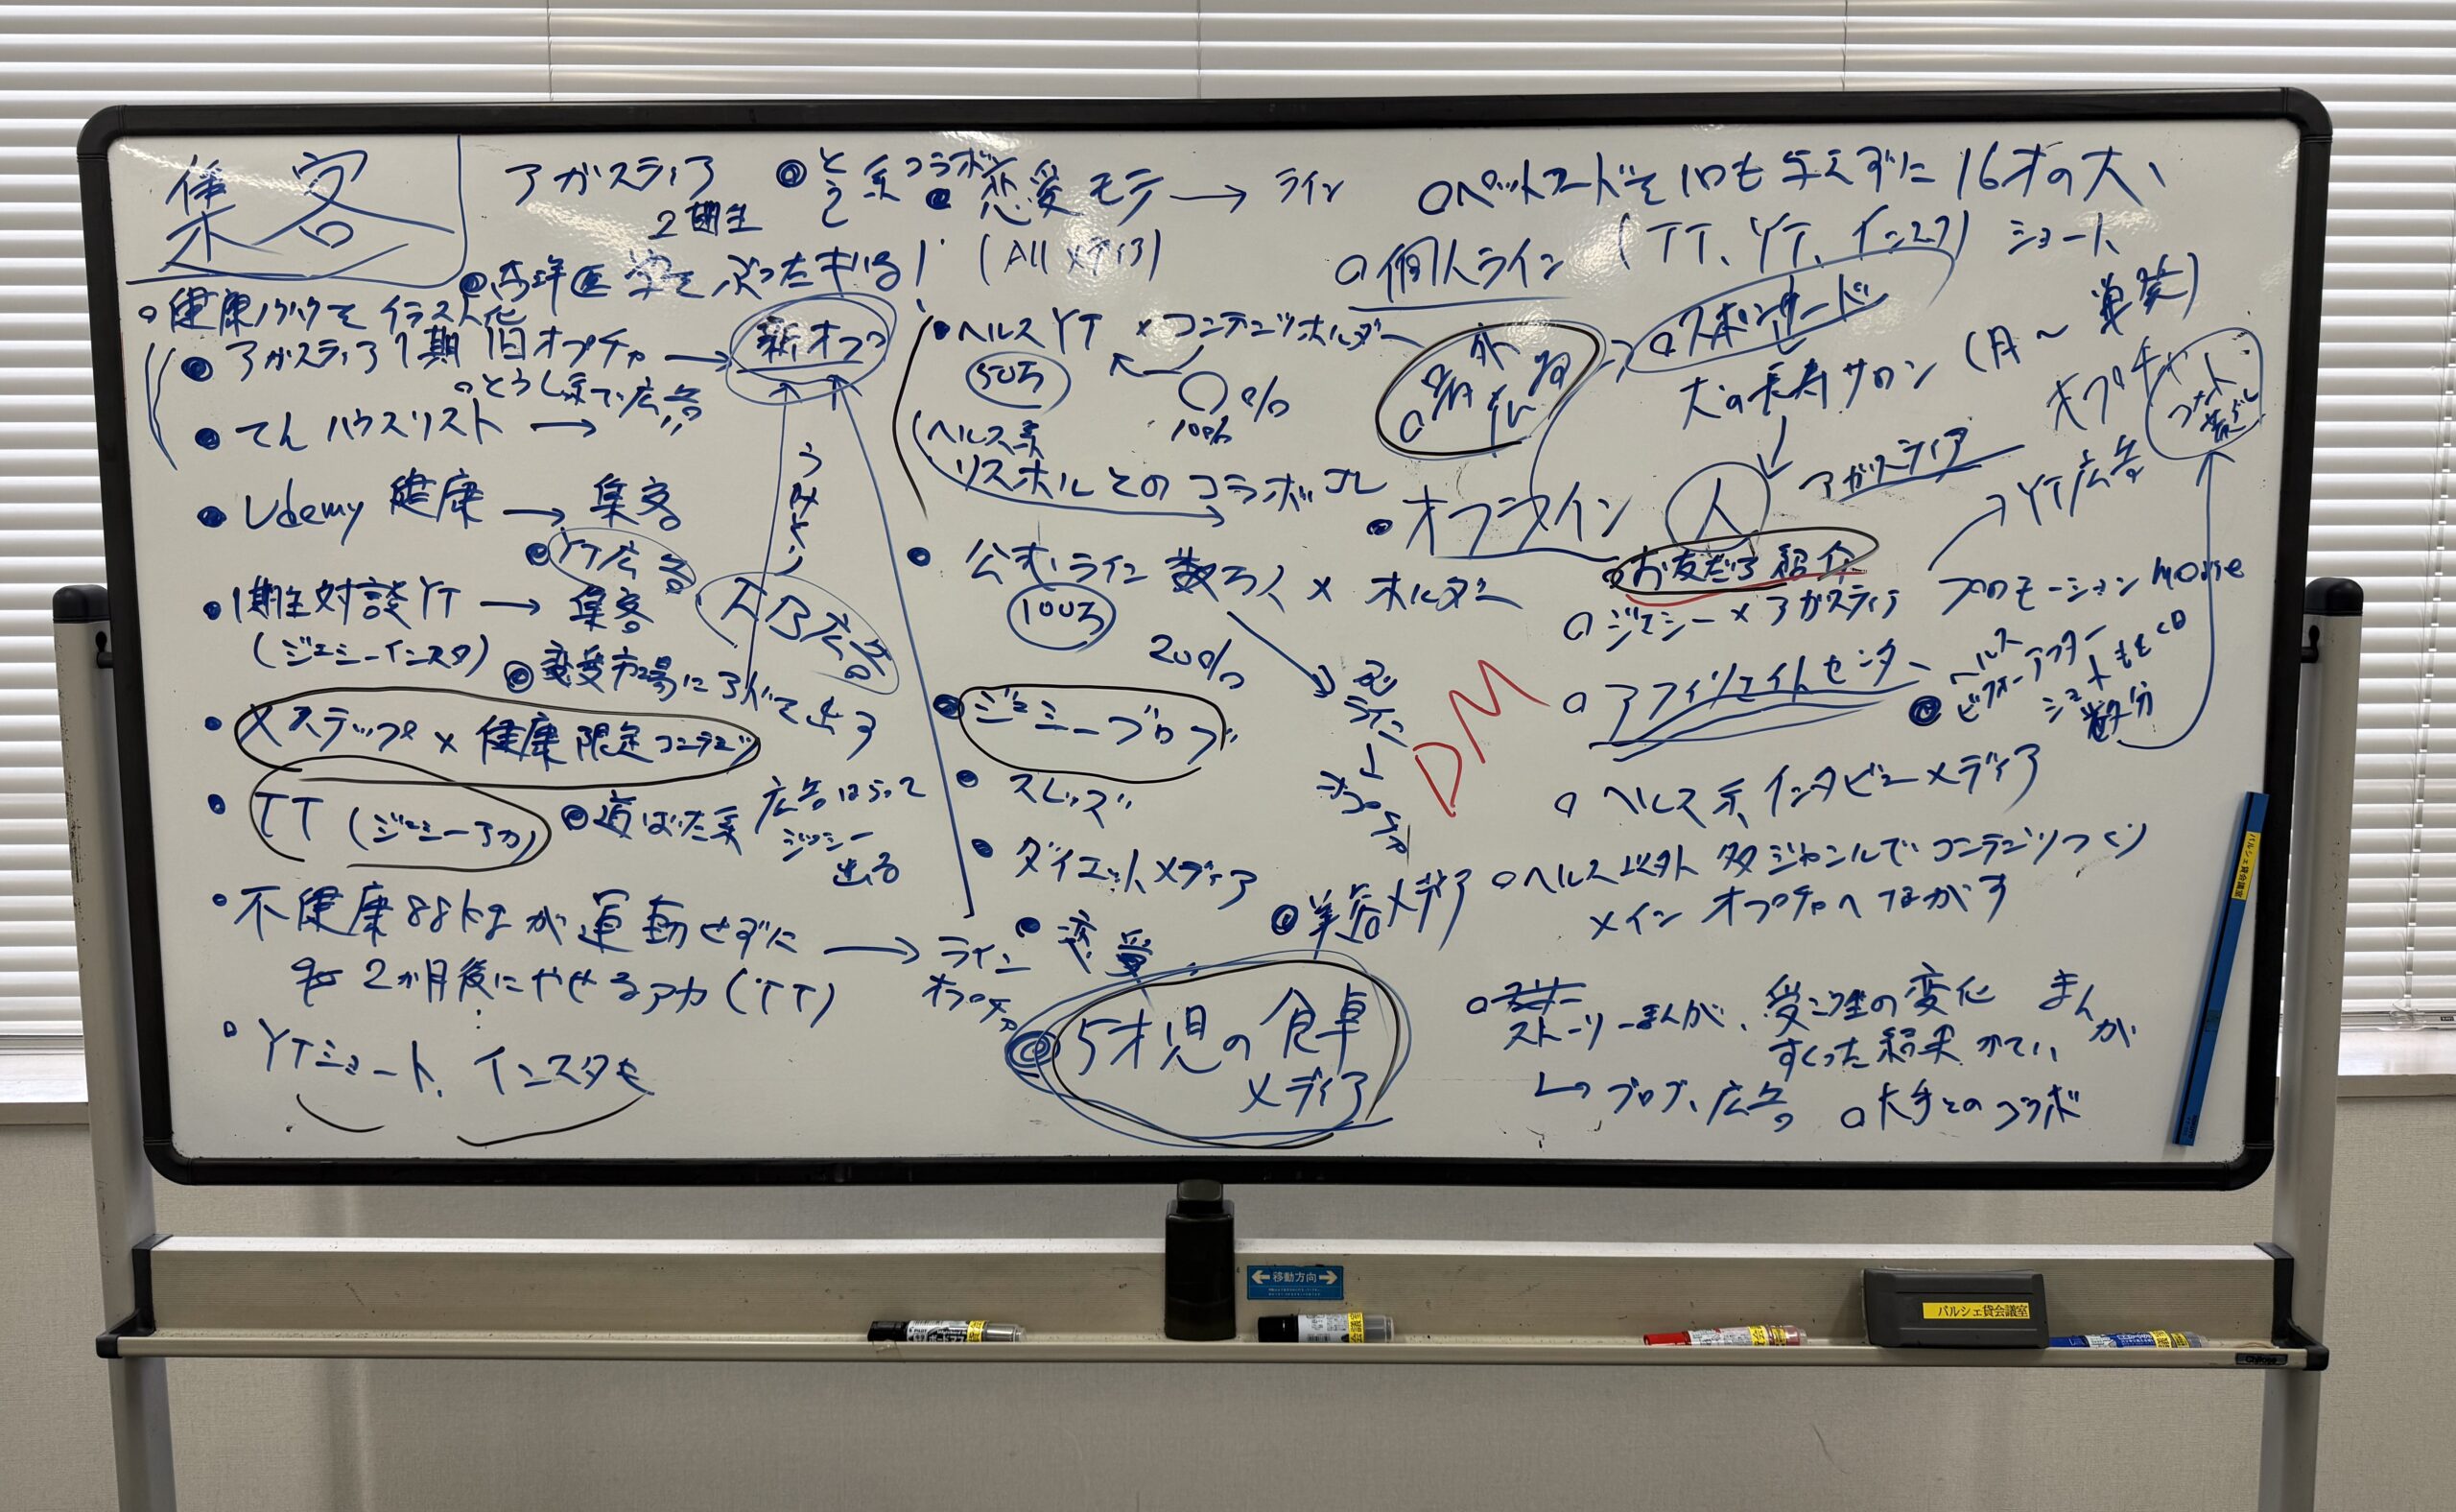 集客
アガスティア
2期生
◎とう系コラボ
恋愛モテ → ライン
(All メディア)
○ペットフードを1回も与えずに16才の犬、
(TT、YT、インスタ) ショート
○個人ライン
◎西洋医学をぶったぎる
○健康ノウハウをイラスト化
アガスティア1期 旧オプチャ → 新オプ
○とうし系で広告
てんハウスリスト →
Udemy 健康 → 集客
◎YT広告
1期生対談YT → 集客
(ジェシーインスタ)
AB広告
◎恋愛市場にアガで出す
Xステップ × 健康限定コンテンツ
TT (ジェシーアカ)
◎道ばた系 広告はらって
ジェシー
出る
不健康88kgが運動せずに
2か月後にやせるアカ (TT)
→ ライン
オプチャ
YTショート、インスタも
ヘルスYT × コンテンツホルダー
50万
○%
100%
(ヘルス系
リスホルとのコラボ
公式ライン数万人 × ホルダー
100万
20%
ライン
↓
オプチャ
ジェシーブログ
スレッズ
ダイエットメディア
恋愛
◎美容メディア
◎5才児の食卓
メディア
○スポンサード
犬の長寿サロン (月〜
オプチャ
オフライン
人
アガスティア
YT広告
○お友だち紹介
○ジェシー × アガスティア
プロモーション movie
○アフィリエイトセンター
◎ヘルス
ビフォーアフター
ショートもとの
数分
DM
○ヘルス系インタビューメディア
○ヘルス以外 多ジャンルでコンテンツつくり
メインオプチャへながす
ストーリーまんが、受講生の変化 まんが
すくった結果
↳ ブログ、広告
○大手とのコラボ
移動方向
パルシェ貸会議室
パルシェ貸会議室